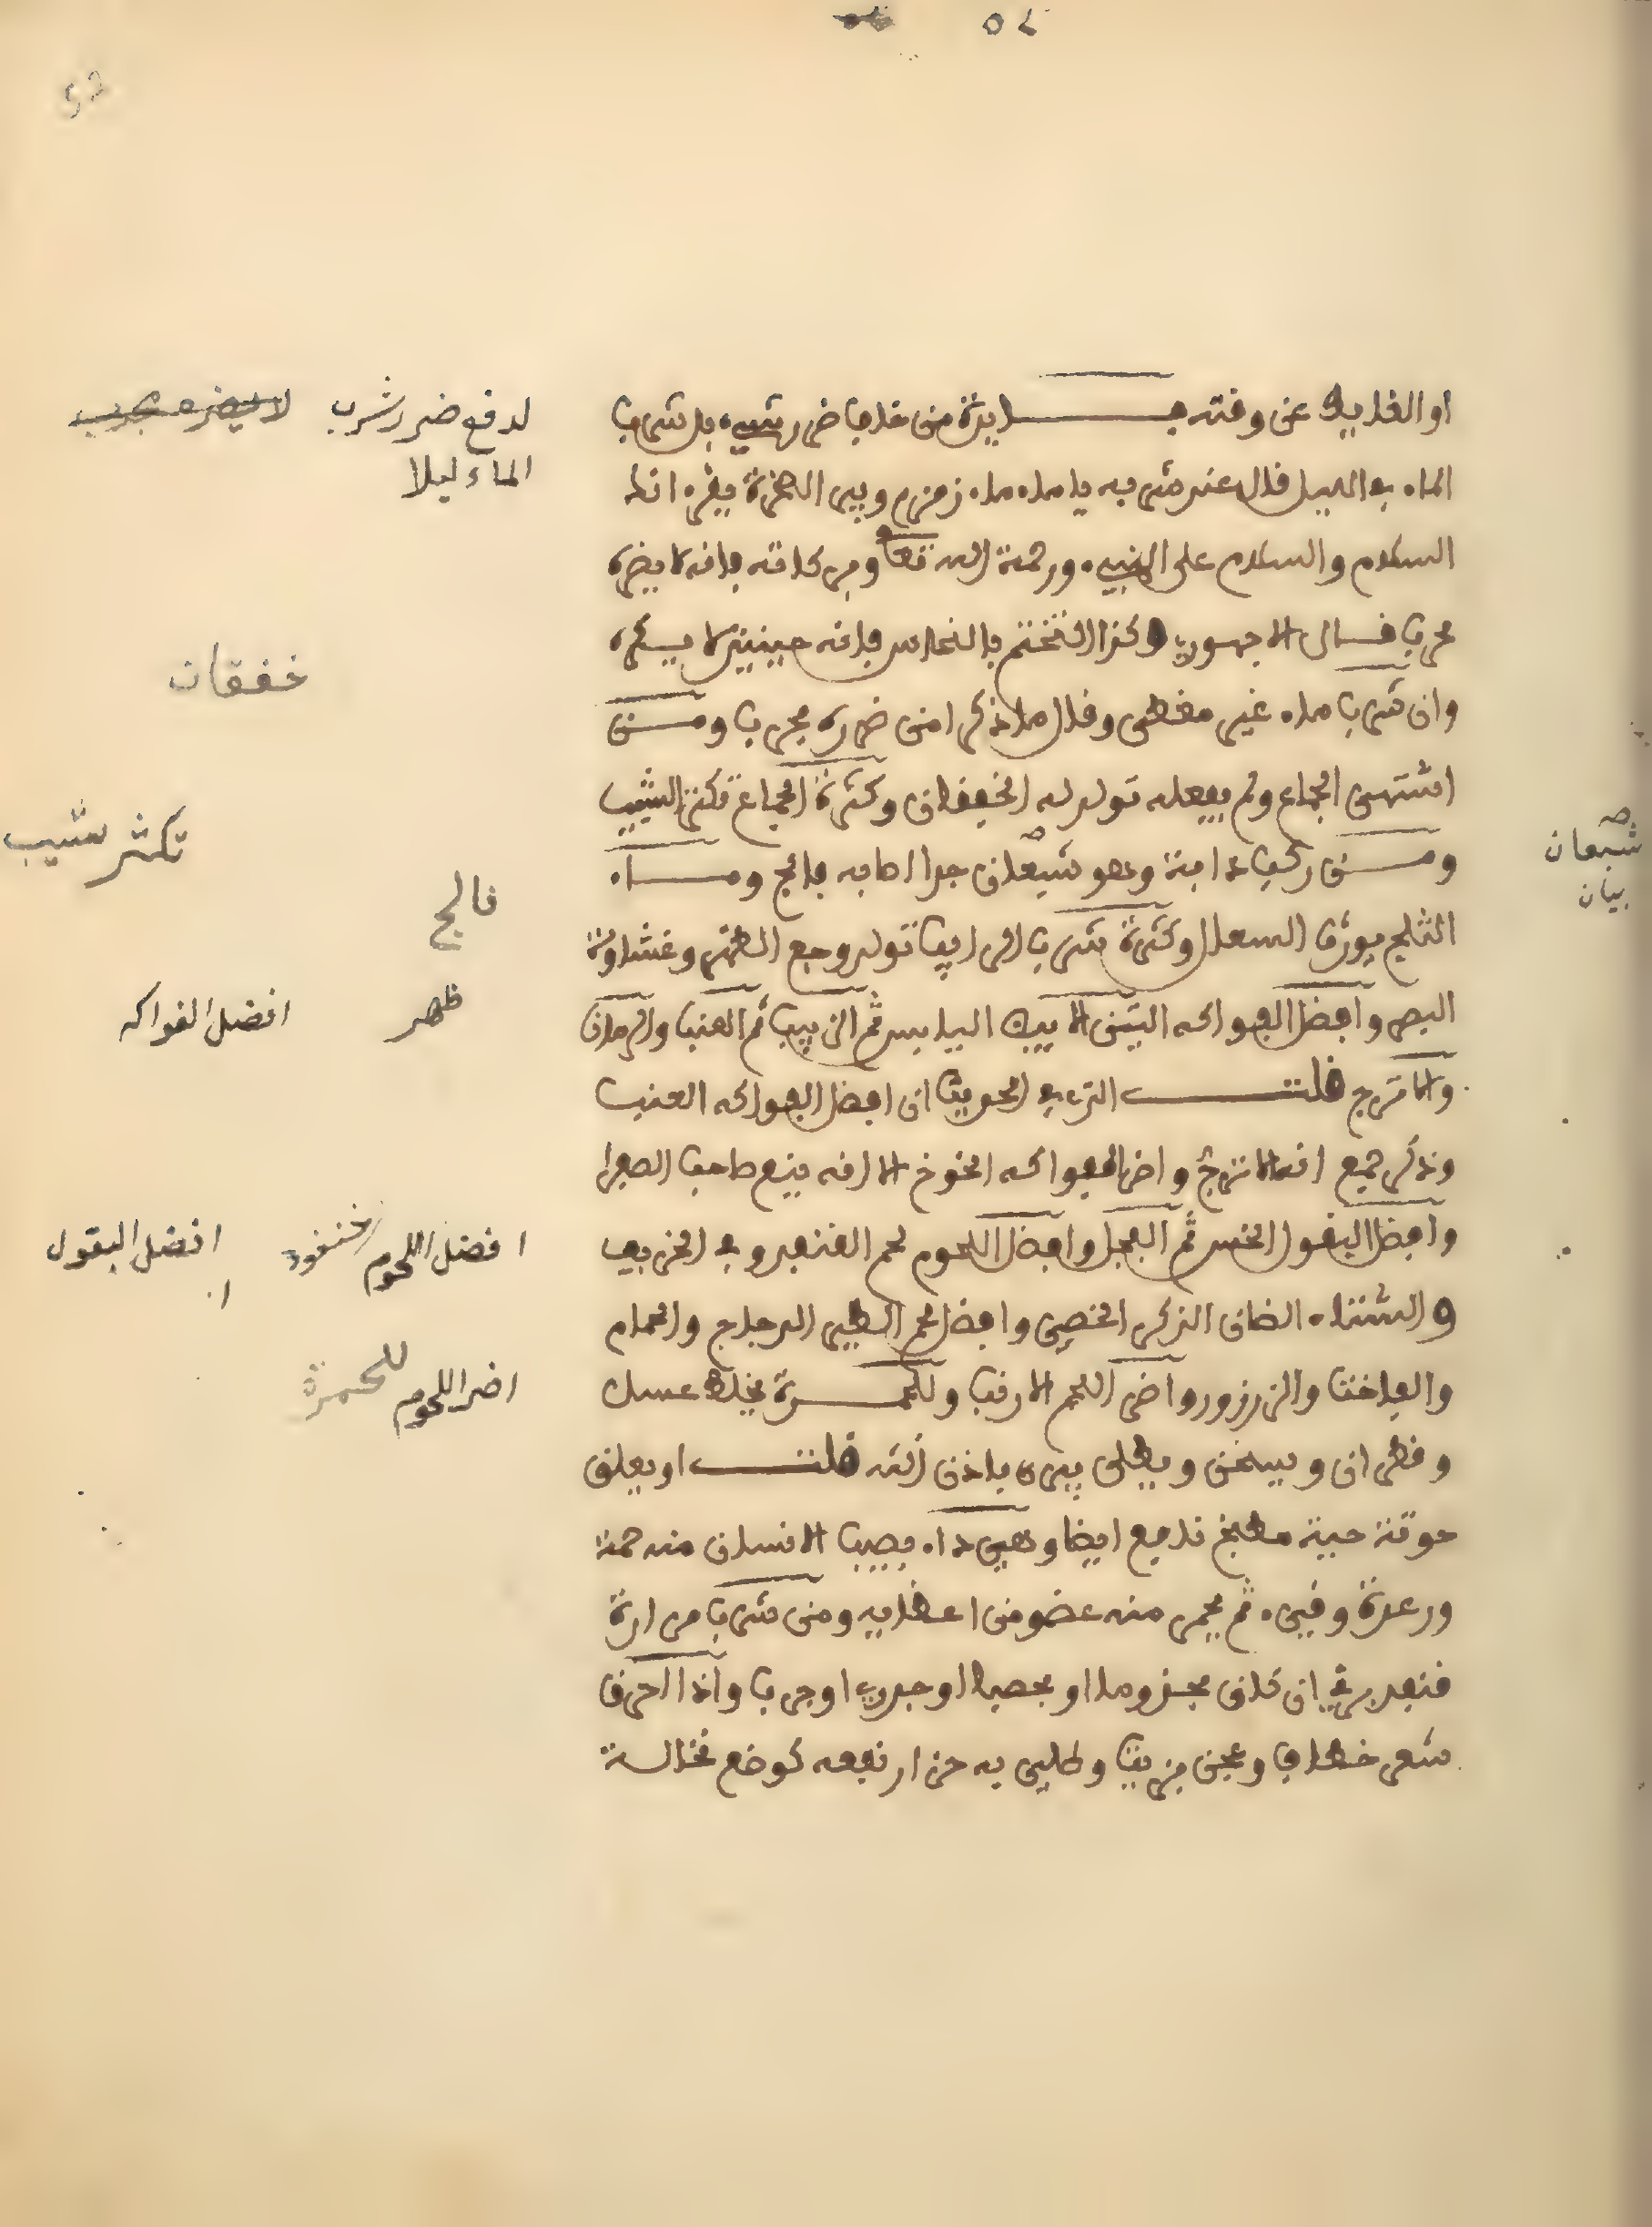 52
او الغايط عن وقته فـــايدة من خاف ضرر شيء بل شرب
الماء في الليل قال عند شربه يا ماء ماء زمزم وبير الهمزة يقرء انك
السلام والسلام على النبي ورحمة الله تعا وبركاته فانه لا يضره
مجرب قـــال الاجهوري وكذا التختم بالنحاس فانه حينئذ لا يـــكره
وان شرب ماء غير مغطى وقال ما ذكر امن ضرره مجرب ومـــن
اشتهى الجماع ولم يفعله تولد له الخفقان وكثرة الجماع تكثر الشيب
ومـــن ركب دابة وهو شبعان جدا اصابه فالج ومـــاء
الثلج يورث السعال وكثرة شرب الرايب تولد وجع الظهر وغشاوة
البصر وافضل الفواكه التين الابيض اليابس ثم الزبيب ثم العنب والرمان
والاترج قلـــت الذي في الحديث ان افضل الفواكه العنب
وذكر جميع انه الاترج واضر الفواكه الخوخ الا انه ينفع صاحب الصفرا
وافضل البقول الخس ثم الفجل وافضل اللحوم لحم القنفد وفي الخريف
والشتاء الضان الذكر الخصي وافضل لحم الطير الدجاج والحمام
والفاخت والزرزور واضر اللحم الارنب وللحمـــرة يخلط عسل
وقطران ويسخن ويطلى يبرء باذن الله قلـــت او يعلق
حوتة حية مطبخ نافع ايضا وهي داء يصيب الانسان منه حمة
ورعدة وقيء ثم يحمر منه عضو من اعضايه ومن شرب مرارة
قنفد برئ ان كان مجذوما او بحصا او جدري او جرب واذا احرق
شعر خطاف وعجن بزيت وطلي به حزاز نفعه كوضع نخالة
لدفع ضرر شرب
الماء ليلا
خفقات
تكثر شيب
فالج
ظهر
افضل الفواكه
افضل اللحوم
افضل البقول
اضر اللحوم
للحمرة
شبعان
بيان